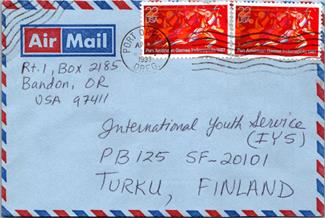 Air Mail
Rt. 1, Box 2185
Bandon, OR
USA 97411
22 USA
Pan American Games Indianapolis 1987
22 USA
Pan American Games Indianapolis 1987
PORT O
OREG.
International Youth Service
(IYS)
PB 125 SF-20101
TURKU, FINLAND